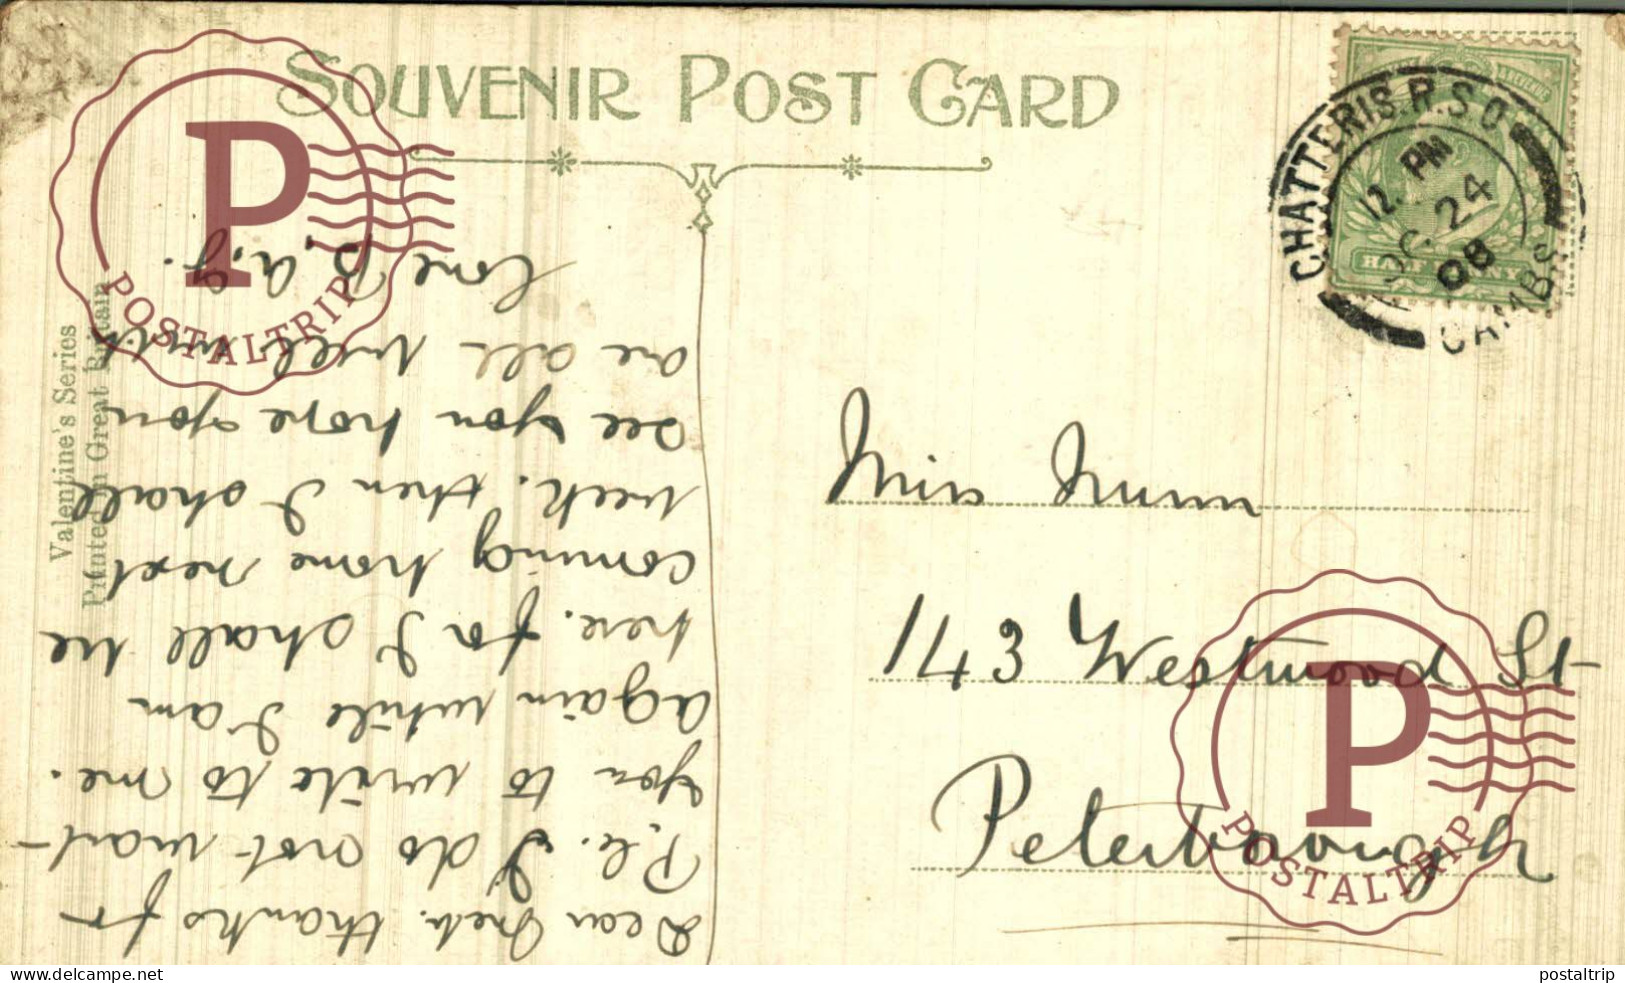 SOUVENIR POST CARD
CHATTERIS R.S.O
12. PM
DC. 24
08
CAMBS
HALFPENNY
Valentine's Series
Printed in Great Britain
Miss Nunn
143 Westwood St
Peterborough
Dear thanks for
P.C. I do not want
you to write to me.
again while I am
here. for I shall be
coming home next
week. then I shall
see you hope you
are all well with
love
POSTALTRIP
POSTALTRIP
https://www.delcampe.net
postaltrip